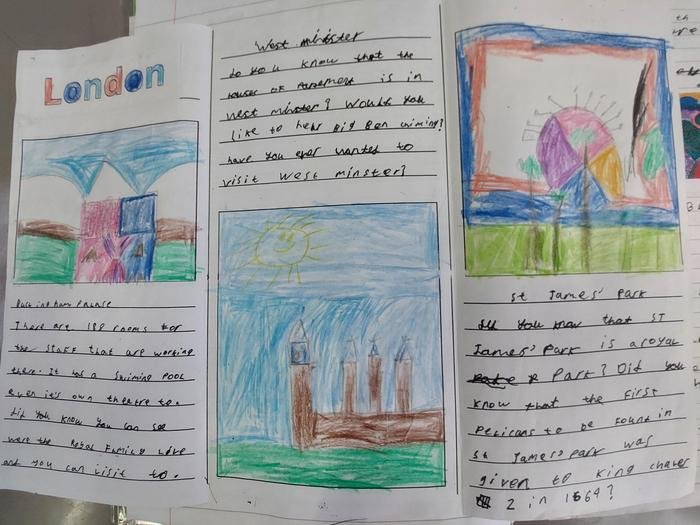 London
Buckingham Palace
There are 188 rooms for
the staff that are working
there. It has a swiming pool
even it's own theatre to.
did you know you can see
were the Royal Family live
and you can visit to.
West minister
do you know that the
houses of parlement is in
west minster? Would you
like to hear Big Ben chiming?
have you ever wanted to
visit west minster?
St James' Park
did you know that ST
James' Park is a royal
Park? Did you
know that the first
Pelicans to be found in
St James' park was
given to king charles
2 in 1664?